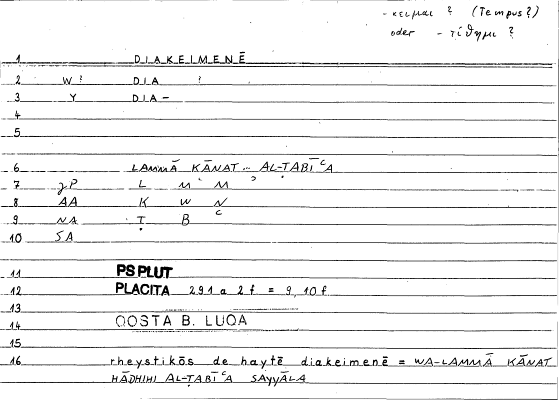 - κειμαι ? (Tempus?)
oder - τίθημι ?
1 DIAKEIMENĒ
2 W? DIA ?
3 Y DIA-
4
5
6 LAMMĀ KĀNAT... AL-ṬABĪʿA
7 L M M
8 AA K W N
9 NA Ṭ B ʿ
10 SA
11 PS PLUT
12 PLACITA 291 a 2 f = 9, 10 f
13
14 QOSTA B. LUQA
15
16 rheystikōs de haytē diakeimenē = WA-LAMMĀ KĀNAT
HĀDHIHI AL-ṬABĪʿA SAYYĀLA